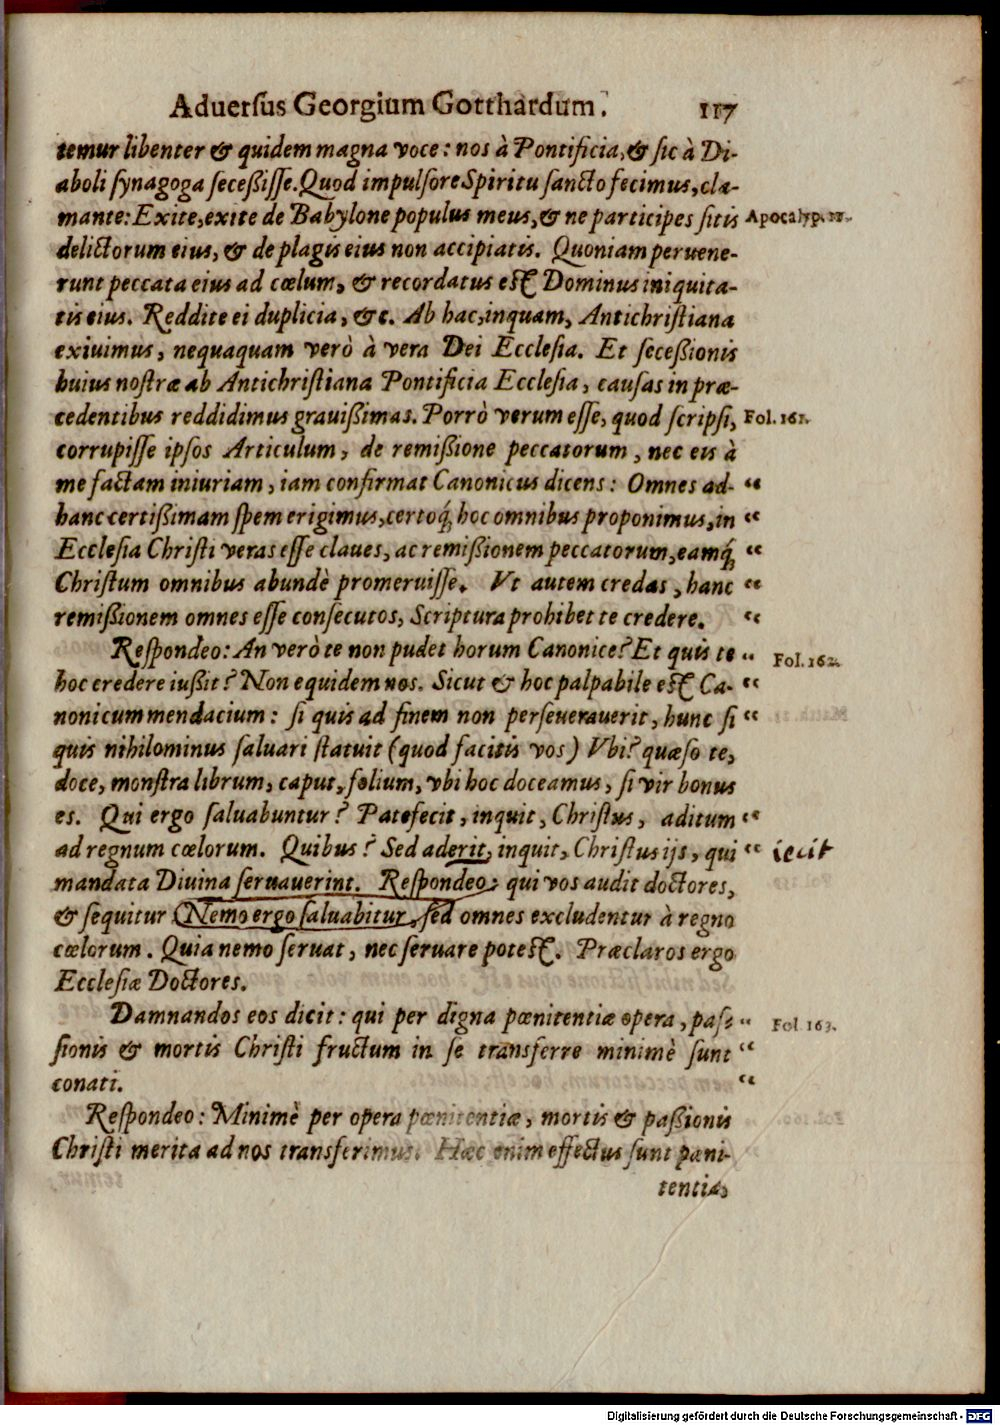 Aduersus Georgium Gotthardum. 117
temur libenter & quidem magna voce: nos à Pontificia, & sic à Di-
aboli synagoga secessisse. Quod impulsore Spiritu sancto fecimus, cla-
mante: Exite, exite de Babylone populus meus, & ne participes sitis
Apocalyp.
delictorum eius, & de plagis eius non accipiatis. Quoniam peruene-
runt peccata eius ad cœlum, & recordatus est Dominus iniquita-
tis eius. Reddite ei duplicia, &c. Ab hac, inquam, Antichristiana
exiuimus, nequaquam verò à vera Dei Ecclesia. Et secessionis
huius nostræ ab Antichristiana Pontificia Ecclesia, causas in præ-
cedentibus reddidimus grauißimas. Porrò verum esse, quod scripsi,
Fol. 161.
corrupisse ipsos Articulum, de remißione peccatorum, nec eis à
me factam iniuriam, iam confirmat Canonicus dicens: Omnes ad- “
hanc certißimam spem erigimus, certoq́; hoc omnibus proponimus, in “
Ecclesia Christi veras esse claues, ac remißionem peccatorum, eamq́; “
Christum omnibus abundè promeruisse. Vt autem credas, hanc “
remißionem omnes esse consecutos, Scriptura prohibet te credere. “
Respondeo: An verò te non pudet horum Canonice? Et quis te “
Fol. 162.
hoc credere iußit? Non equidem nos. Sicut & hoc palpabile est Ca- “
nonicum mendacium: si quis ad finem non perseuerauerit, hunc si “
quis nihilominus saluari statuit (quod facitis vos) Vbi? quæso te,
doce, monstra librum, caput, folium, vbi hoc doceamus, si vir bonus
es. Qui ergo saluabuntur? Patefecit, inquit, Christus, aditum “
ad regnum cœlorum. Quibus? Sed aderit, inquit, Christus ijs, qui “
iecit
mandata Diuina seruauerint. Respondeo: qui vos audit doctores,
& sequitur (Nemo ergo saluabitur, sed omnes excludentur à regno
cœlorum. Quia nemo seruat, nec seruare potest. Præclaros ergo
Ecclesiæ Doctores.
Damnandos eos dicit: qui per digna pœnitentiæ opera, pas- “
Fol. 163.
sionis & mortis Christi fructum in se transferre minimè sunt “
conati. “
Respondeo: Minimè per opera pœnitentiæ, mortis & paßionis
Christi merita ad nos transferimus. Hæc enim effectus sunt pœni-
tentiæ,
Digitalisierung gefördert durch die Deutsche Forschungsgemeinschaft - DFG